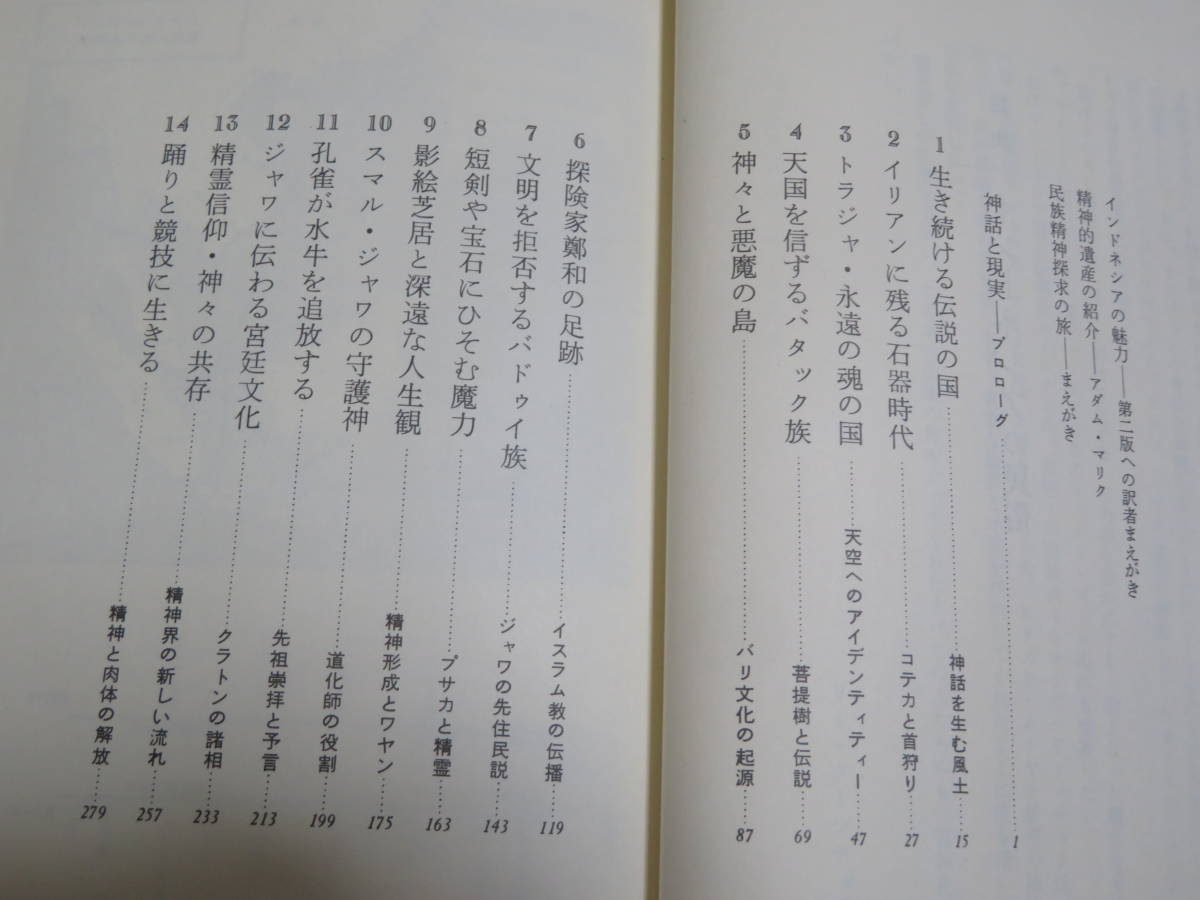 インドネシアの魅力——第二版への訳者まえがき
精神的遺産の紹介——アダム・マリク
民族精神探求の旅——まえがき
神話と現実——プロローグ……………………1
1 生き続ける伝説の国……………………神話を生む風土……15
2 イリアンに残る石器時代……………………コテカと首狩り……27
3 トラジャ・永遠の魂の国……天空へのアイデンティティー……47
4 天国を信ずるバタック族……………………菩提樹と伝説……69
5 神々と悪魔の島……………………バリ文化の起源……87
6 探険家鄭和の足跡……………………イスラム教の伝播……119
7 文明を拒否するバドゥイ族……………………ジャワの先住民説……143
8 短剣や宝石にひそむ魔力……………………プサカと精霊……163
9 影絵芝居と深遠な人生観……………………精神形成とワヤン……175
10 スマル・ジャワの守護神……………………道化師の役割……199
11 孔雀が水牛を追放する……………………先祖崇拝と予言……213
12 ジャワに伝わる宮廷文化……………………クラトンの諸相……233
13 精霊信仰・神々の共存……………………精神界の新しい流れ……257
14 踊りと競技に生きる……………………精神と肉体の解放……279